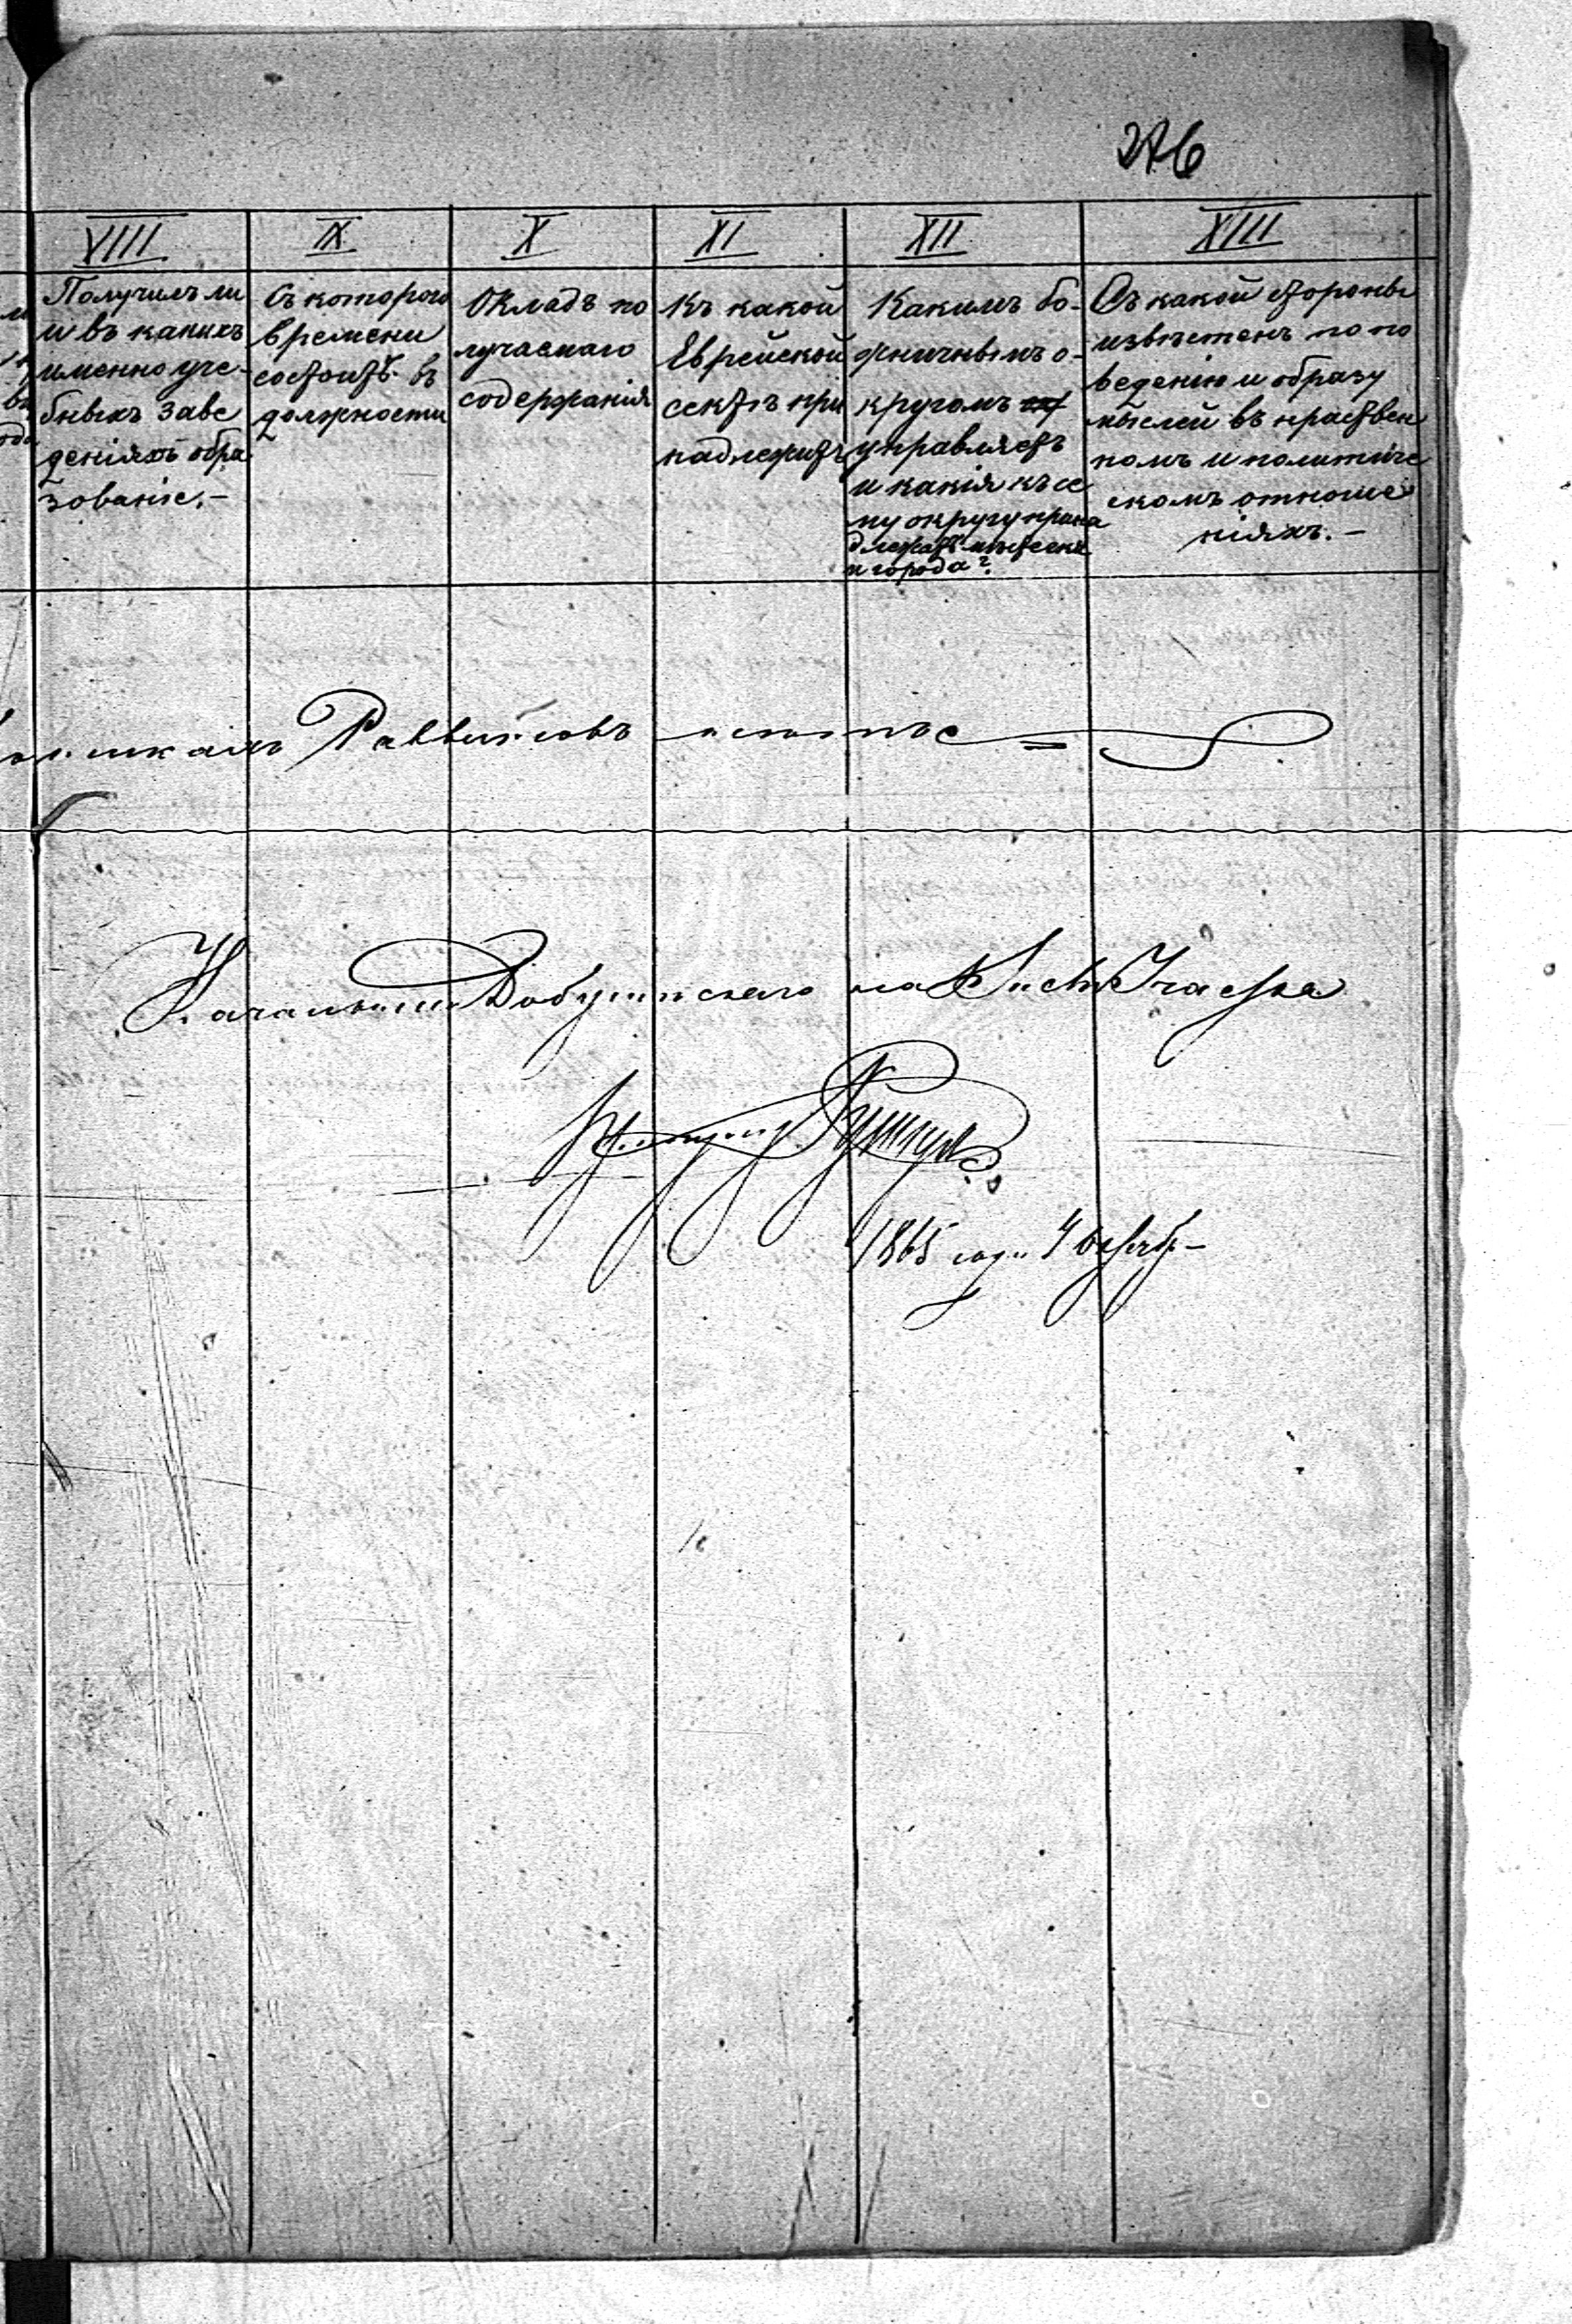 276
VIII
IX
X
XI
XII
XIII
Получилъ ли
и въ какихъ
именно уче-
бныхъ заве
деніяхъ обра
зованіе.-
Съ котораго
времени
состоитъ въ
должности
Окладъ по
лучаемаго
содержанія
Къ какой
Еврейской
сектѣ при
надлежитъ
Какимъ бо-
жничнымъ о-
кругомъ
управляетъ
и какія къ се
му округу прина
длежатъ мѣстечка
и города?
Съ какой стороны
извѣстенъ по по
веденію и образу
мыслей въ нравствен
номъ и политиче
скомъ отноше
ніяхъ.-
Раввиновъ
Начальникъ Добужинскаго Участка
1865 года 4 октяб.-